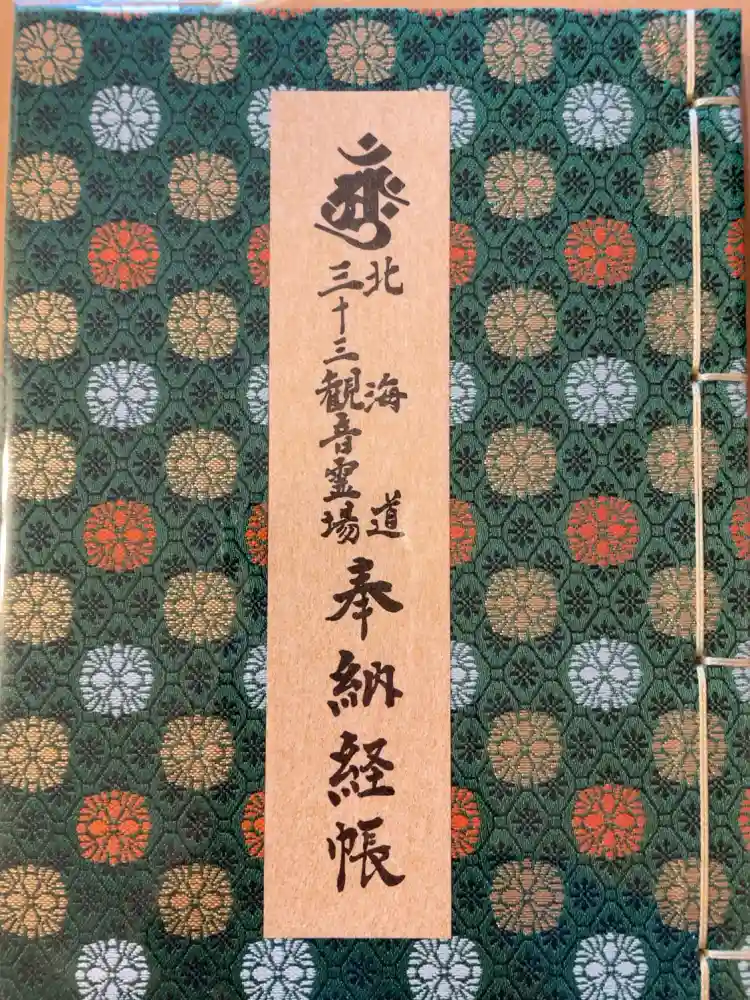 北海道
三十三観音霊場
奉納経帳